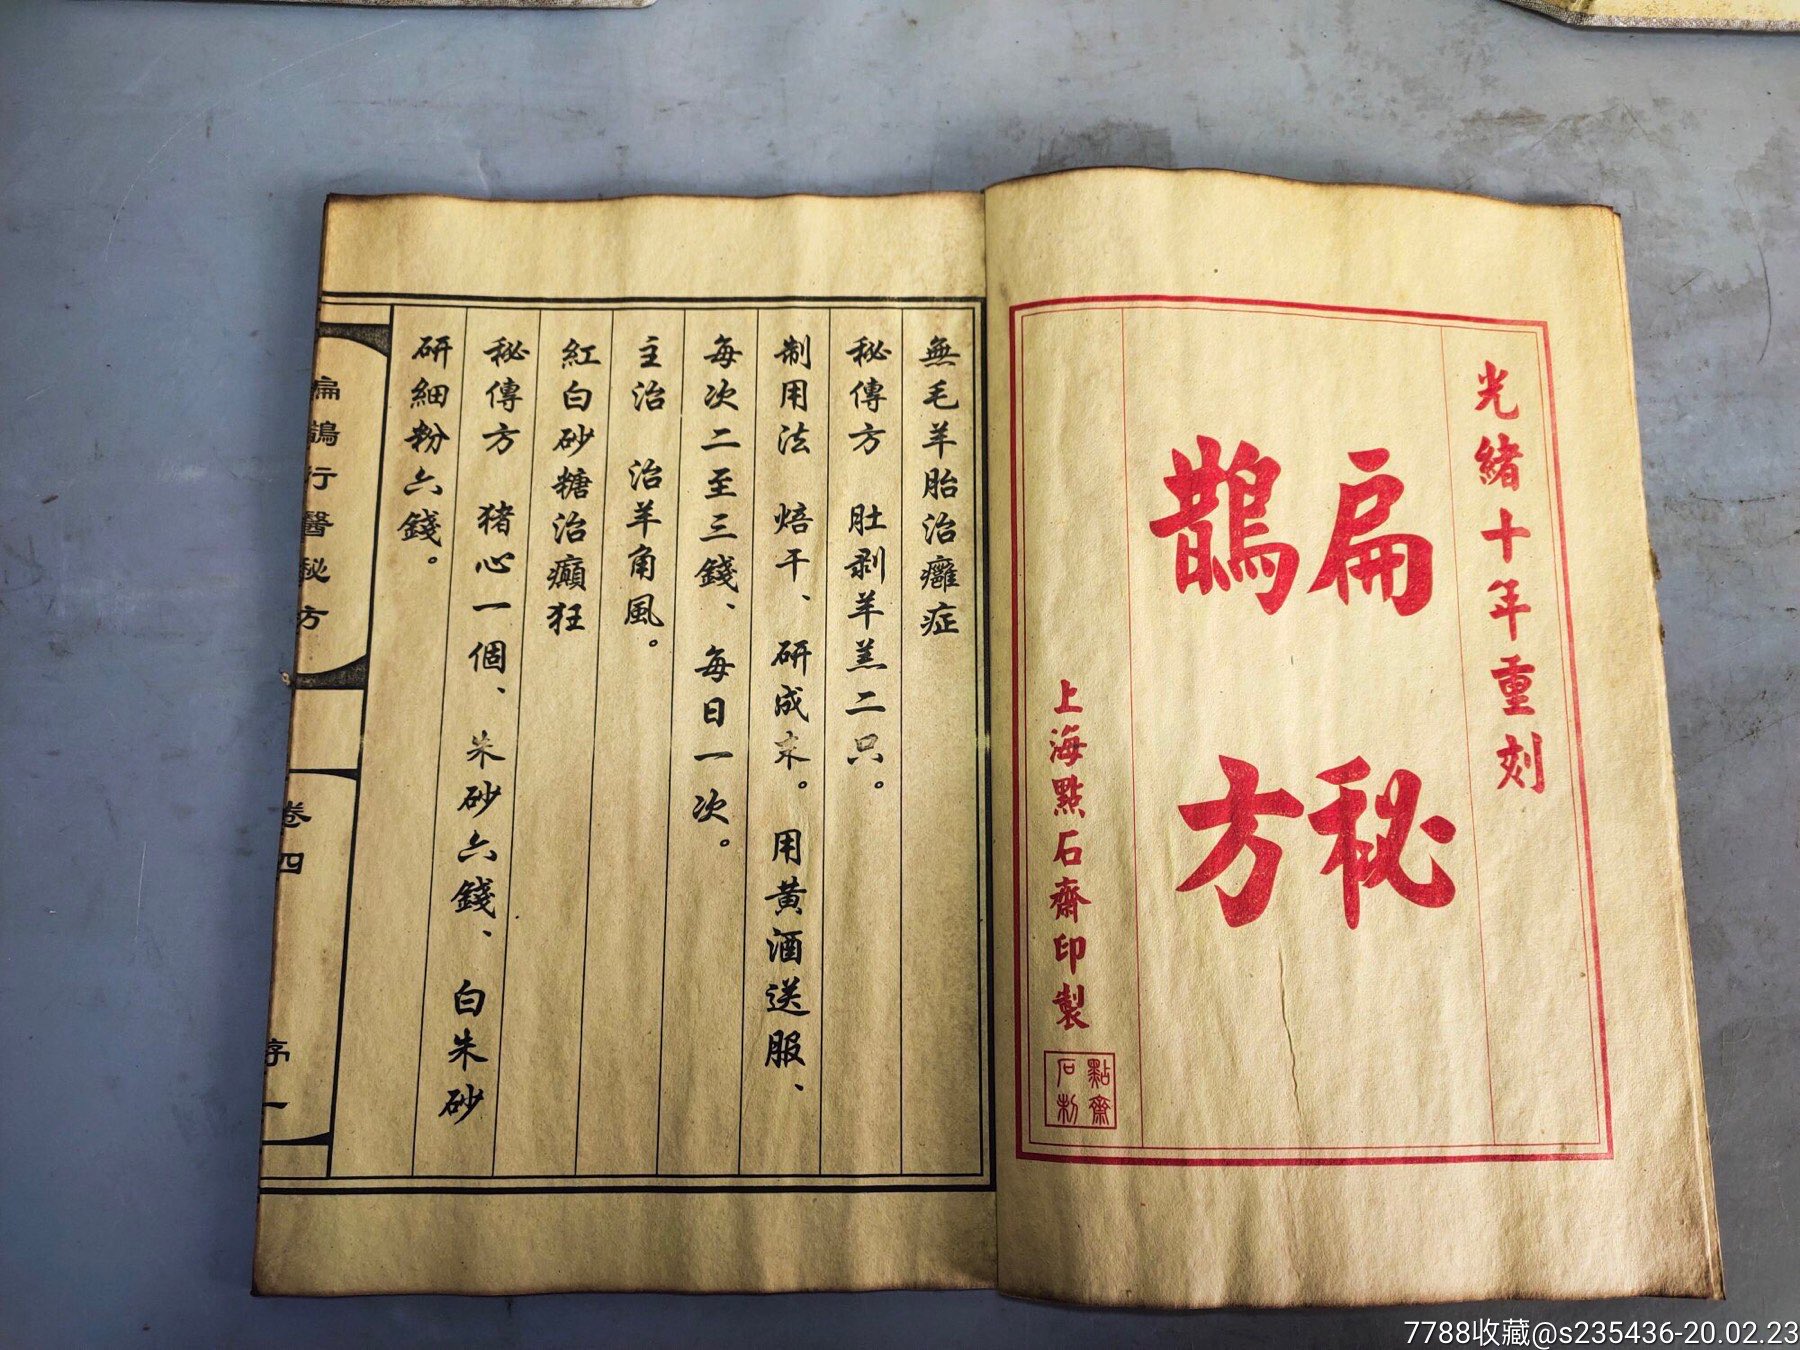 光緒十年重刻
扁鵲
秘方
上海點石齋印製
點齋
石制
無毛羊胎治癱症
秘傳方　肚剥羊羔二只。
制用法　焙干、研成末。用黄酒送服、
每次二至三錢、每日一次。
主治　治羊角風。
紅白砂糖治癲狂
秘傳方　猪心一個、朱砂六錢、白朱砂
研細粉六錢。
扁鵲行醫秘方
卷四
序一
7788收藏@s235436-20.02.23